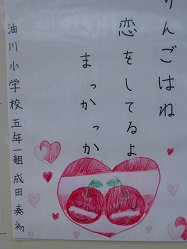 りんごはね
恋をしてるよ
まっかっか
油川小学校五年一組 成田 奏